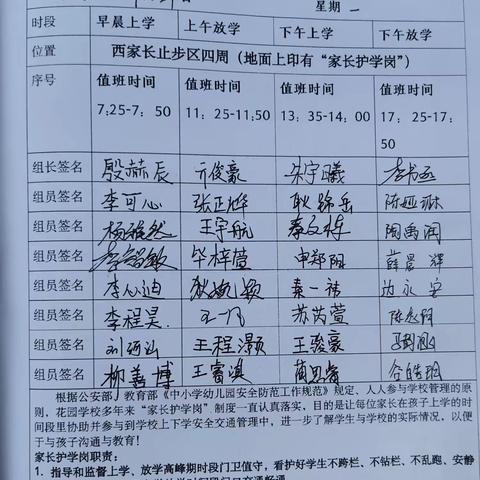 星期 一
时段 早晨上学 上午放学 下午上学 下午放学
位置 西家长止步区四周（地面上印有“家长护学岗”）
序号 值班时间 值班时间 值班时间 值班时间
7;25-7：50 11：25-11;50 13：35-14：00 17：25-17：
50
组长签名 殷赫辰 亓俊豪 朱宇曦
组员签名 李可心 张正烨 耿锦岳 陈娅琳
组员签名 杨皓然 王宇航 秦文栋 陶禹润
组员签名 李铭敏 毕梓萱 申郑阳 薛景耀
组员签名 李心迪 秦一祎
组员签名 李程昊 王一乃 苏芮萱
组员签名 王程灏 王骏豪
组员签名 柳善博 王睿淇
根据公安部、教育部《中小学幼儿园安全防范工作规范》规定，人人参与学校管理的原
则，花园学校多年来“家长护学岗”制度一直认真落实，目的是让每位家长在孩子上学的时
间段里协助并参与到学校上下学安全交通管理中，进一步了解学生与学校的实际情况，以便
于与孩子沟通与教育！
家长护学岗职责：
1. 指导和监督上学、放学高峰期时段门卫值守，看护好学生不跨栏、不钻栏、不乱跑、安静